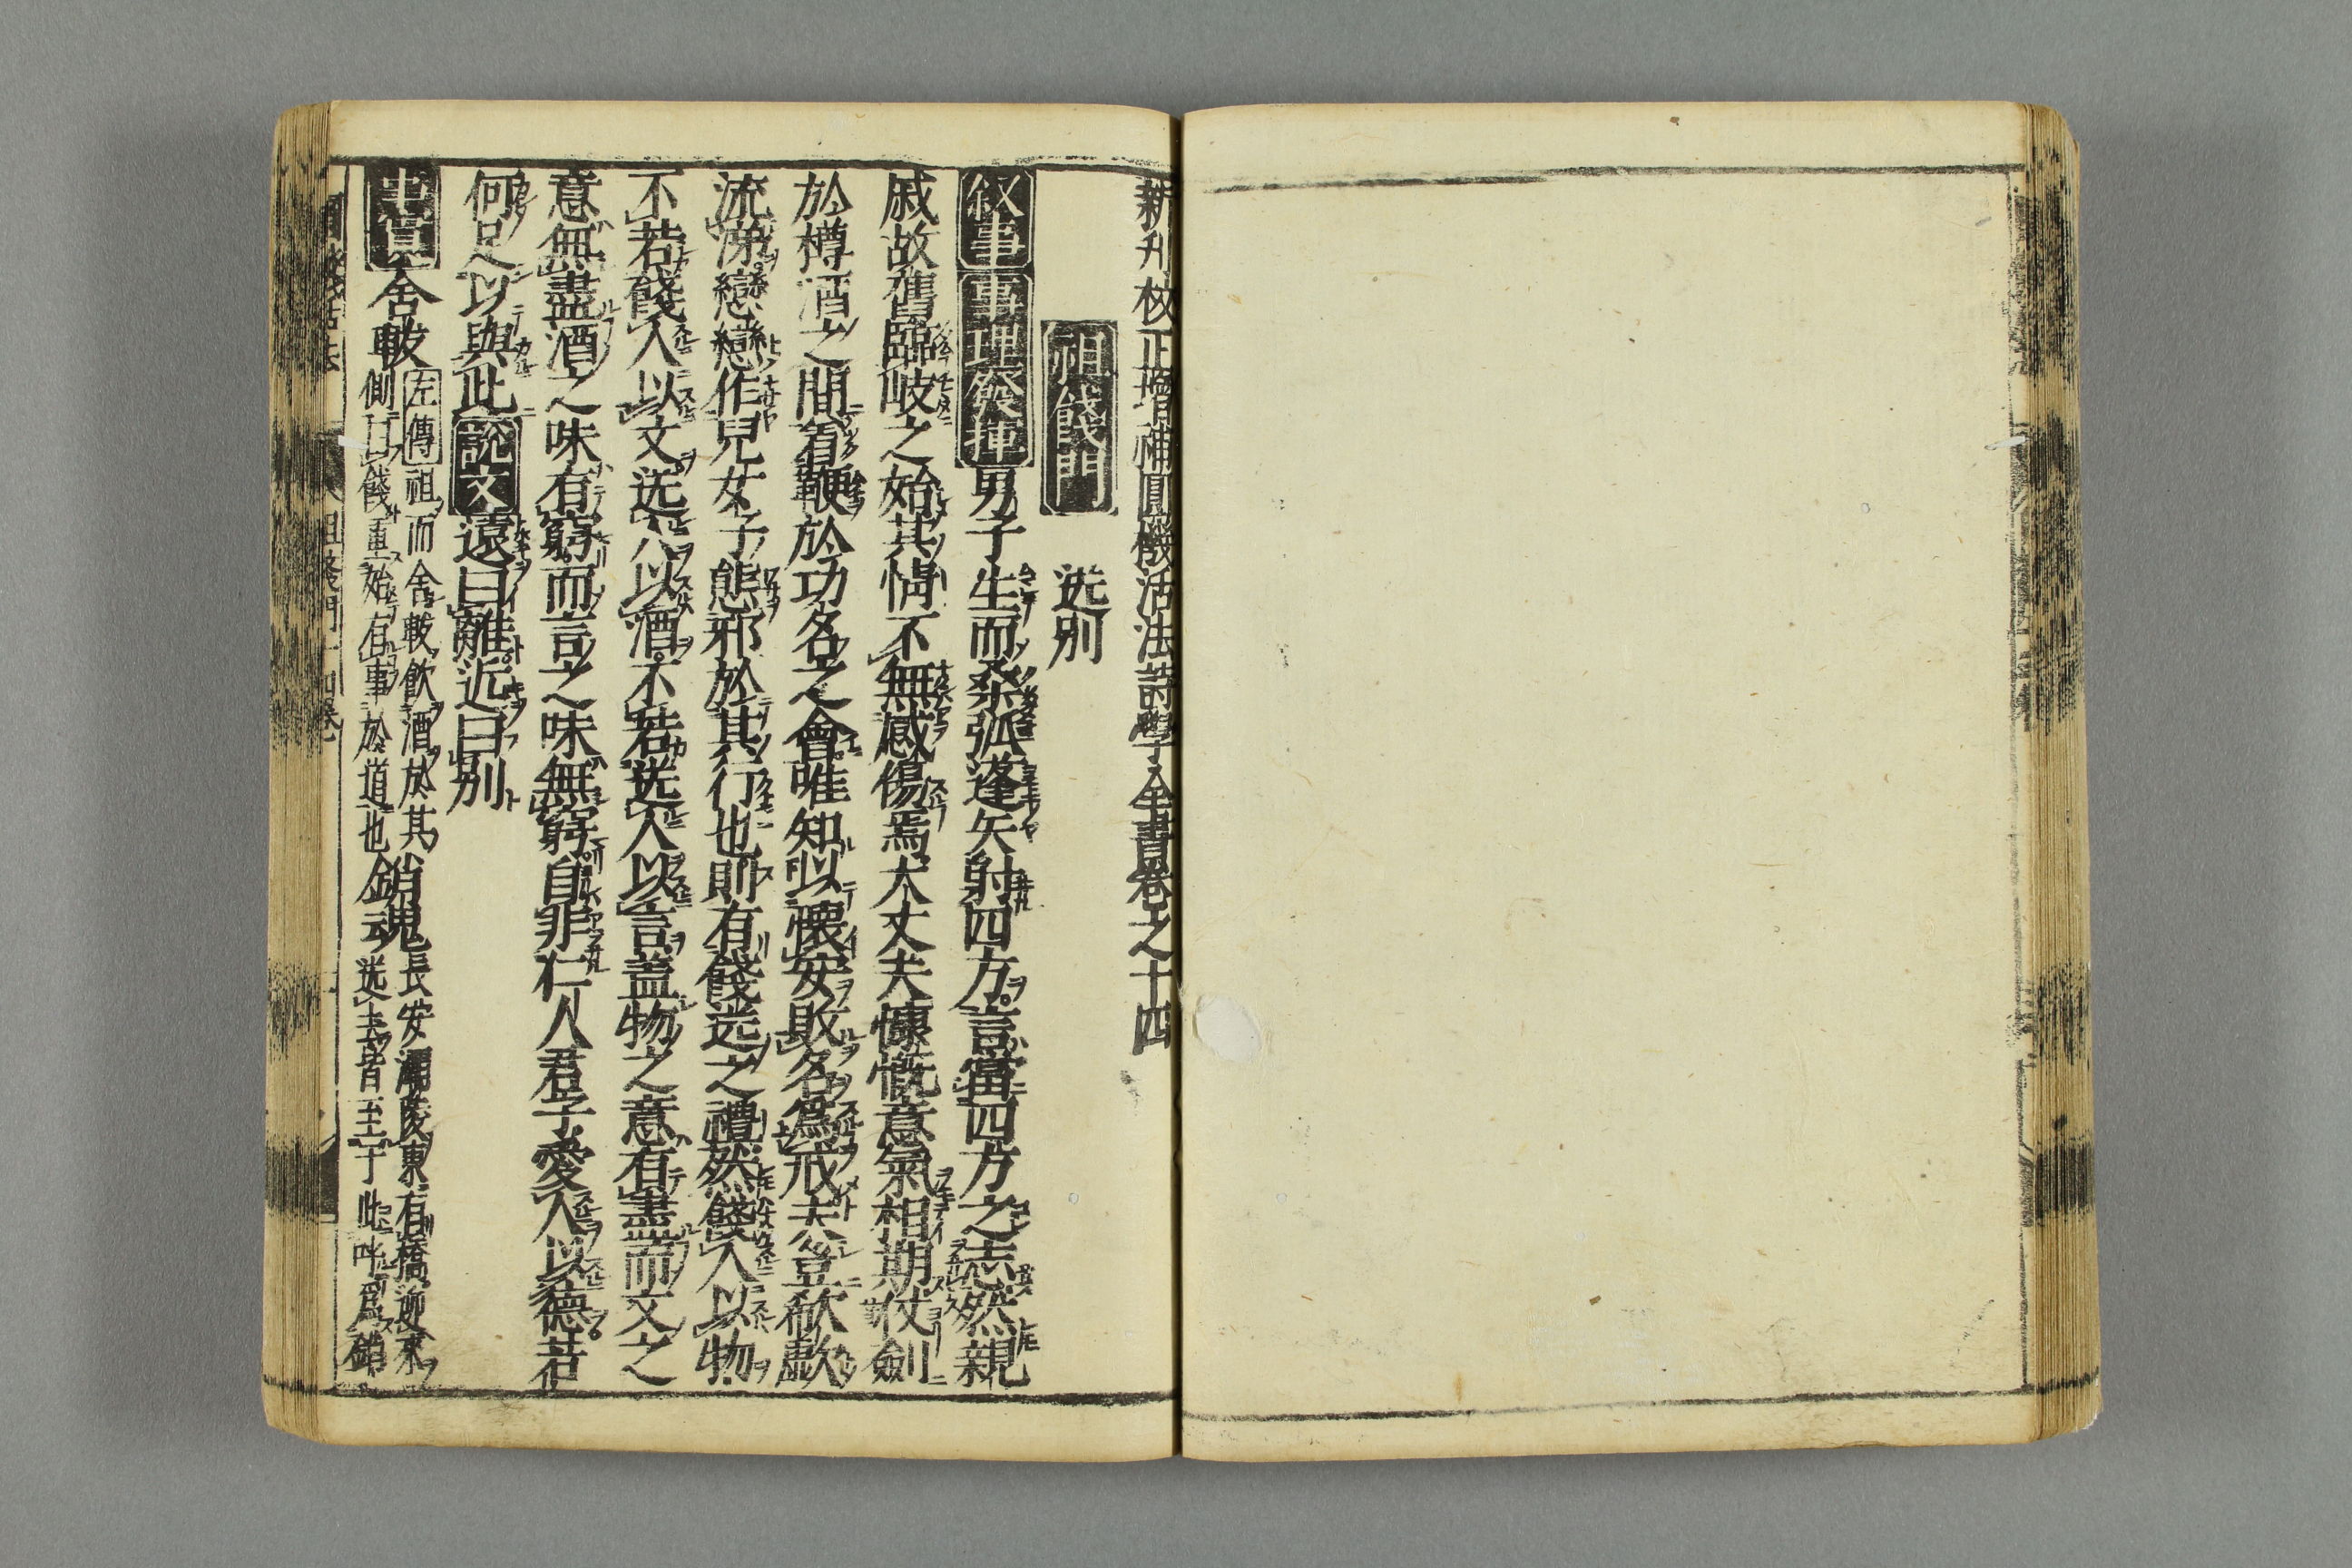 新刋校正增補圓機活法詩學全書卷之十四
祖餞門 送別
叙事 事理發揮 男子生而桑弧蓬矢射四方言當四方之志然親
戚故舊臨岐之始其情不無感傷焉大丈夫慷慨意氣相期仗劍
於樽酒之間着鞭於功名之會唯知以懷安敗名爲戒夫豈欷歔
流涕戀戀作兒女子態邪於其行也則有餞送之禮然餞人以物
不若餞人以文送人以酒不若送人以言蓋物之意有盡而文之
意無盡酒之味有窮而言之味無窮自非仁人君子愛人以德若
何足以與此 說文 遠曰離近曰別
事實 舍軷 左傳祖而舍軷飲酒於其
側曰餞重始有事於道也 銷魂 長安灞陵東有橋迎來
送去皆至于此呼爲銷